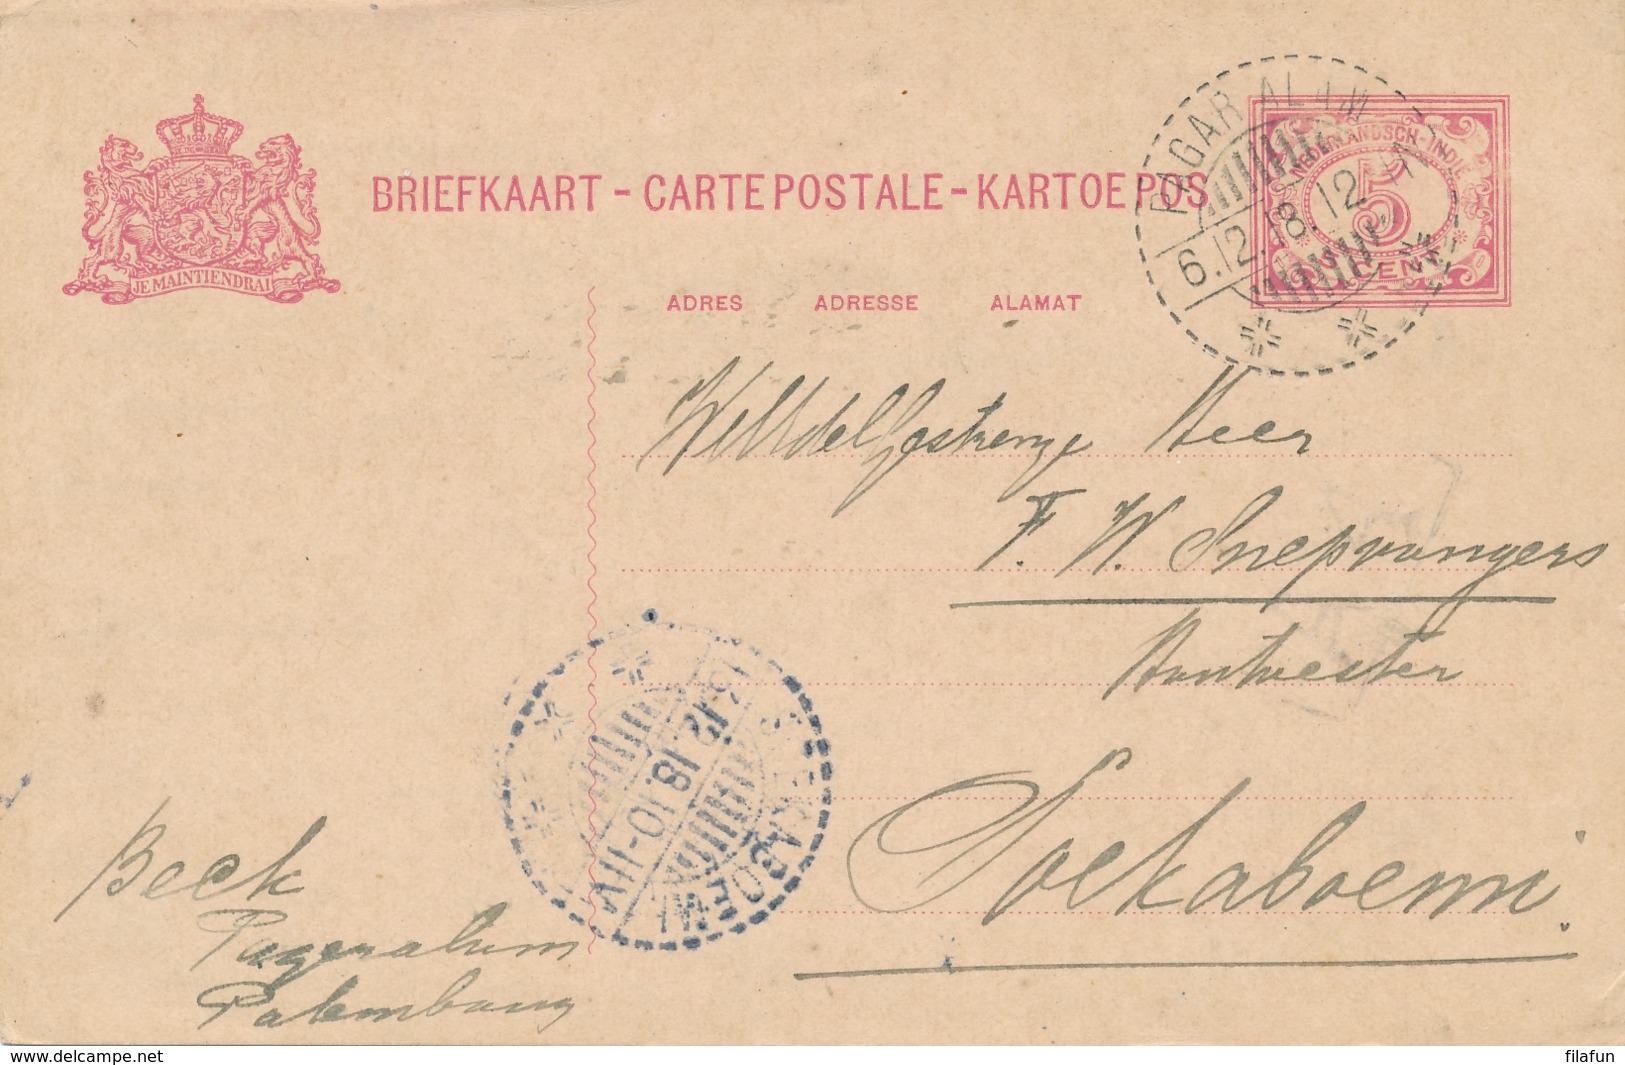 JE MAINTIENDRAI
BRIEFKAART - CARTE POSTALE - KARTOE POS
PAGAR ALAM
6.12.18.12
NEDERLANDSCH-INDIE
5
CENT
ADRES ADRESSE ALAMAT
Heer
F. W. Snepvangers
Soekaboemi.
SOEKABOEMI
13.12.18.10-11V
Beek
Pageralam
Palembang
delcampe.net
filafun